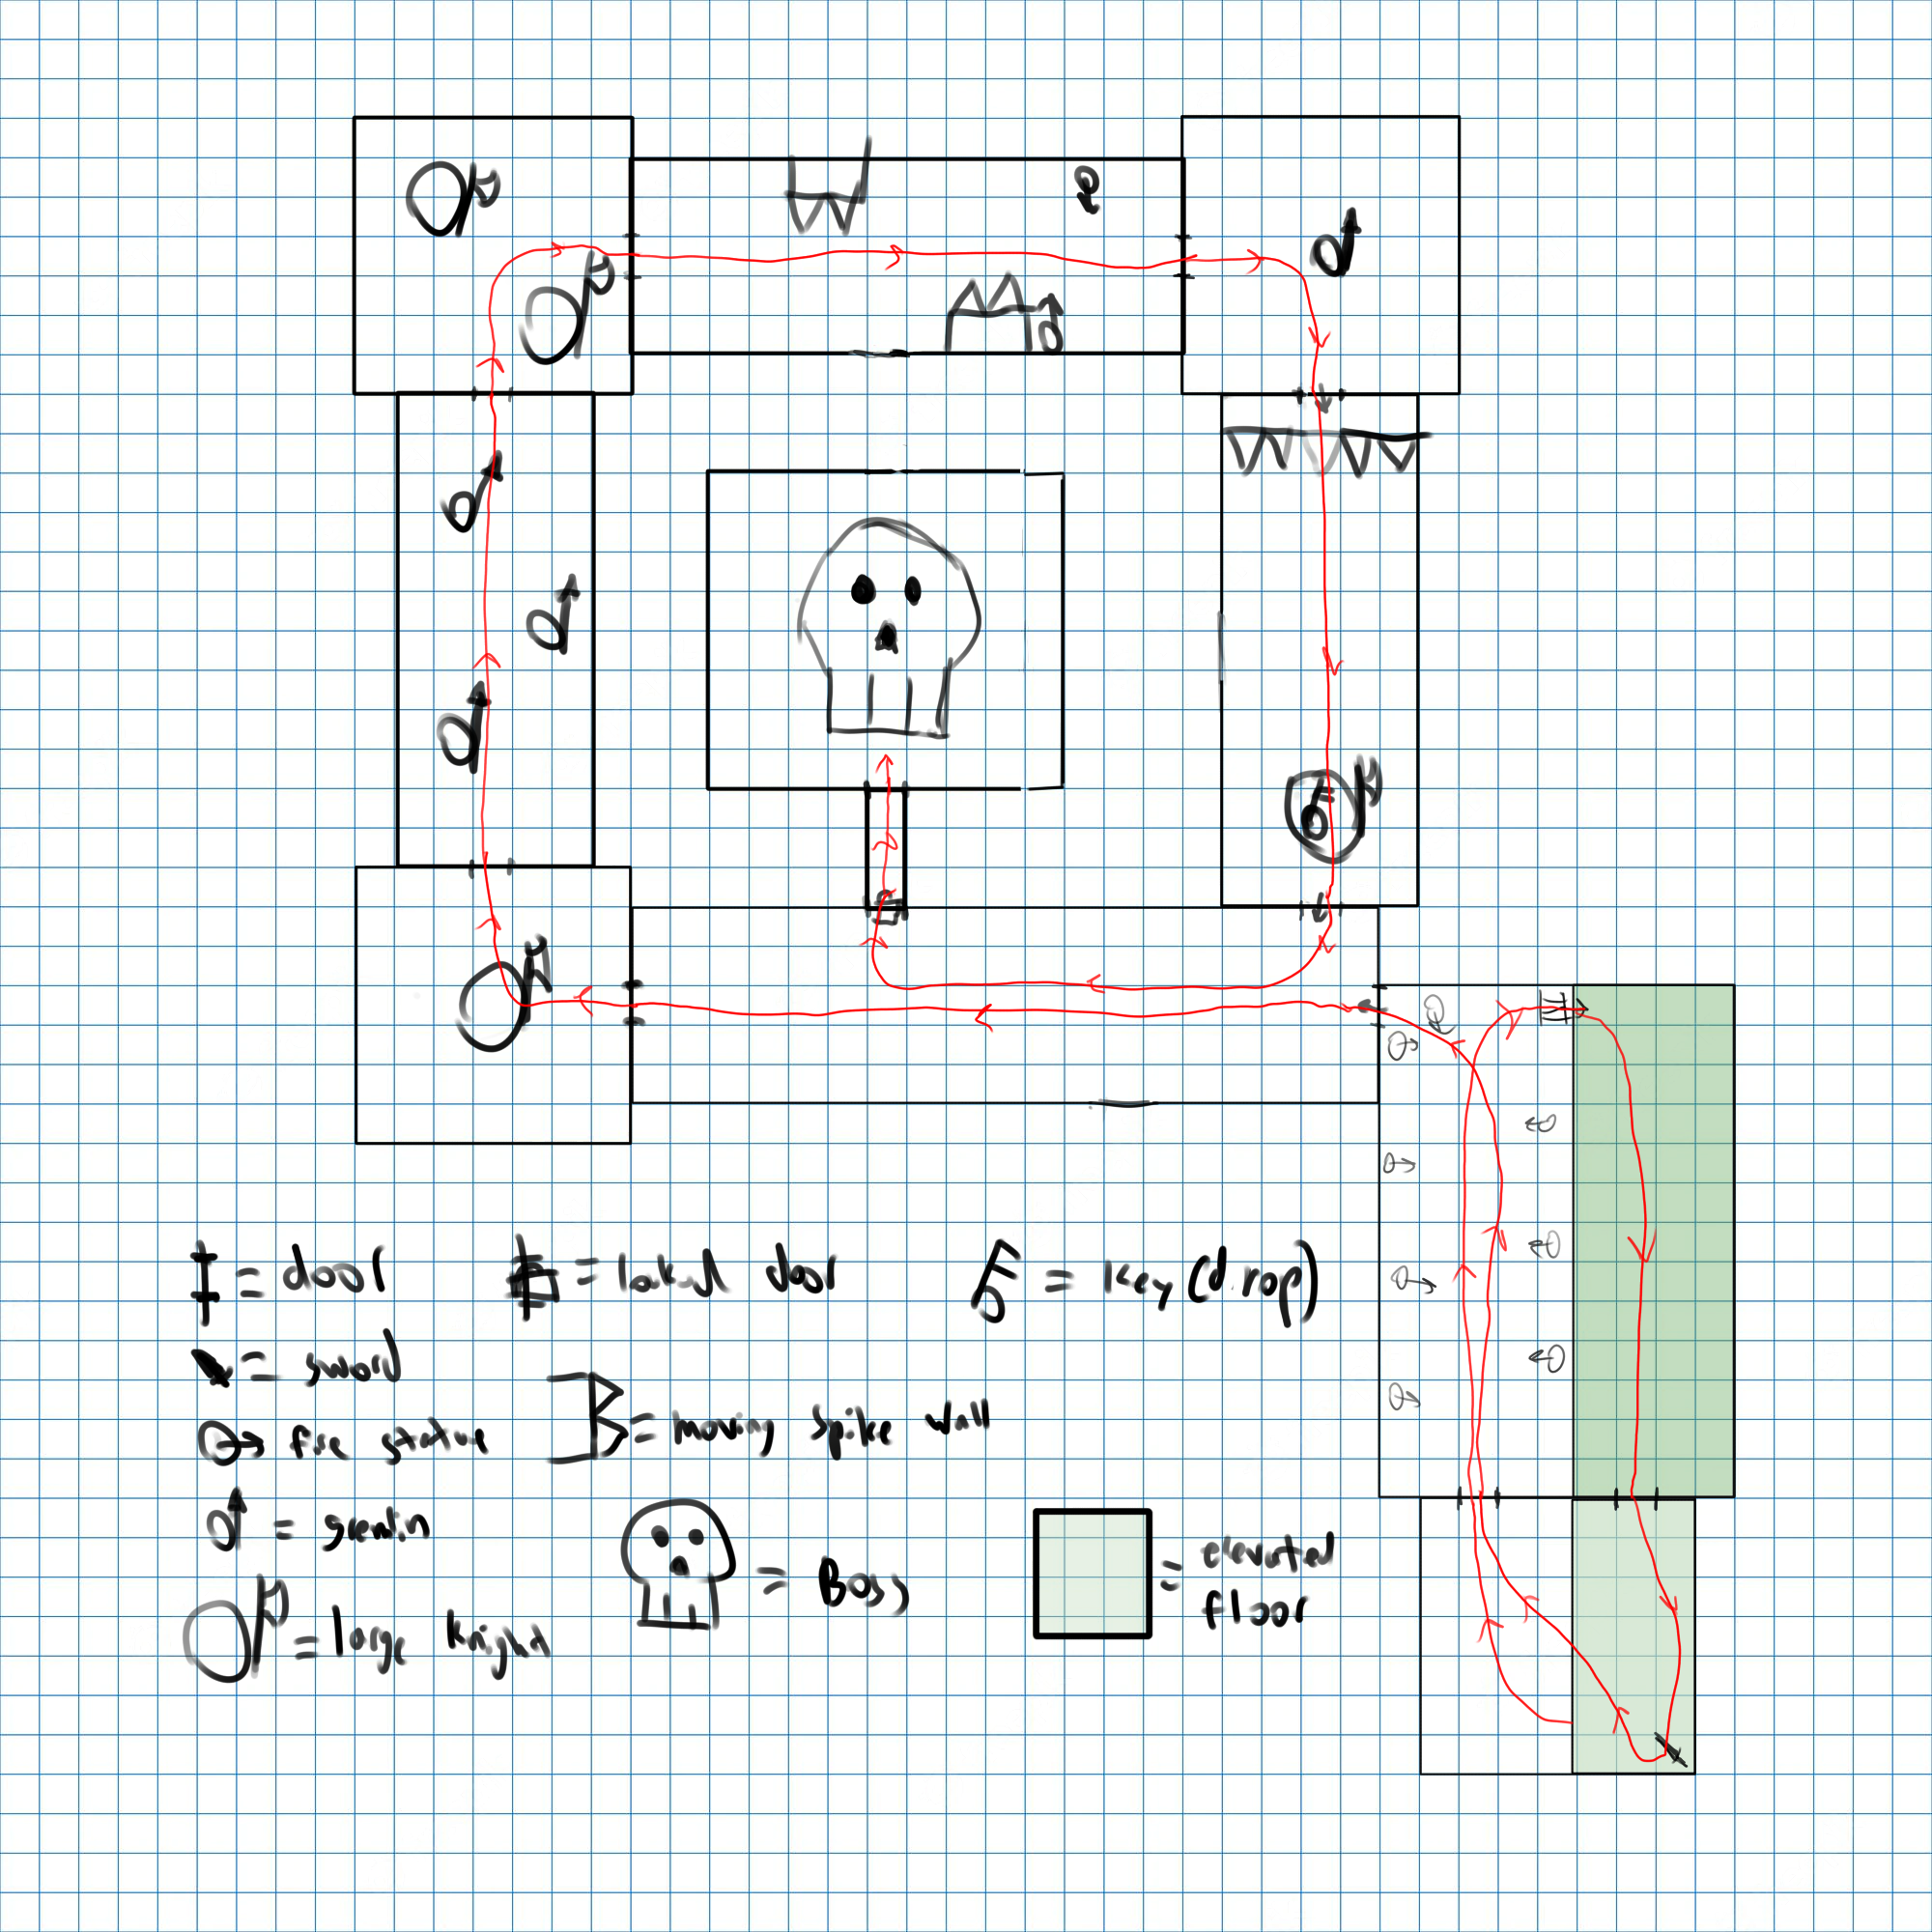 = door
= locked door
= key (drop)
= sword
fire statue
= moving spike wall
= gremlin
= Boss
= elevated floor
= large knight